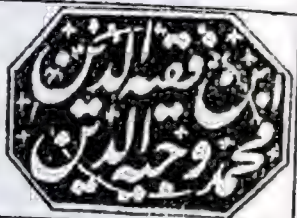 ابن فقیه الدین
محمد وجیه الدین